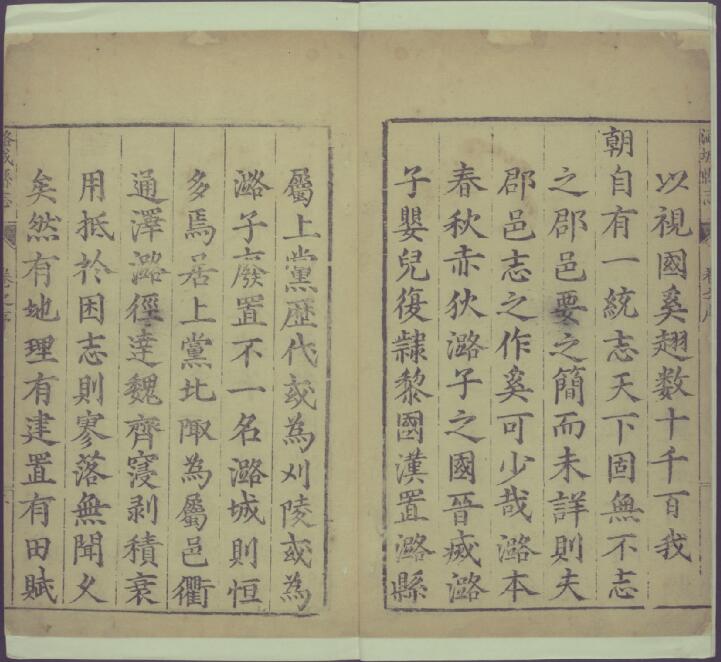 以視國奚趐数十千百我
朝自有一統志天下固無不志
之郡邑要之簡而未詳則夫
郡邑志之作奚可少哉潞本
春秋赤狄潞子之國晉烕潞
子嬰兒復隸黎國漢置潞縣
屬上黨歷代或為刈陵或為
潞子廢置不一名潞城則恒
多焉居上黨北陬為屬邑衝
通澤潞徑達魏齊寖剥積衰
用抵於困志則寥落無聞久
矣然有地理有建置有田賦
潞城縣志